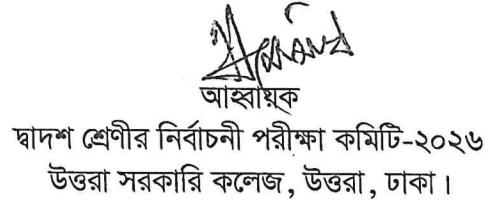 আহ্বায়ক
দ্বাদশ শ্রেণীর নির্বাচনী পরীক্ষা কমিটি-২০২৬
উত্তরা সরকারি কলেজ, উত্তরা, ঢাকা।